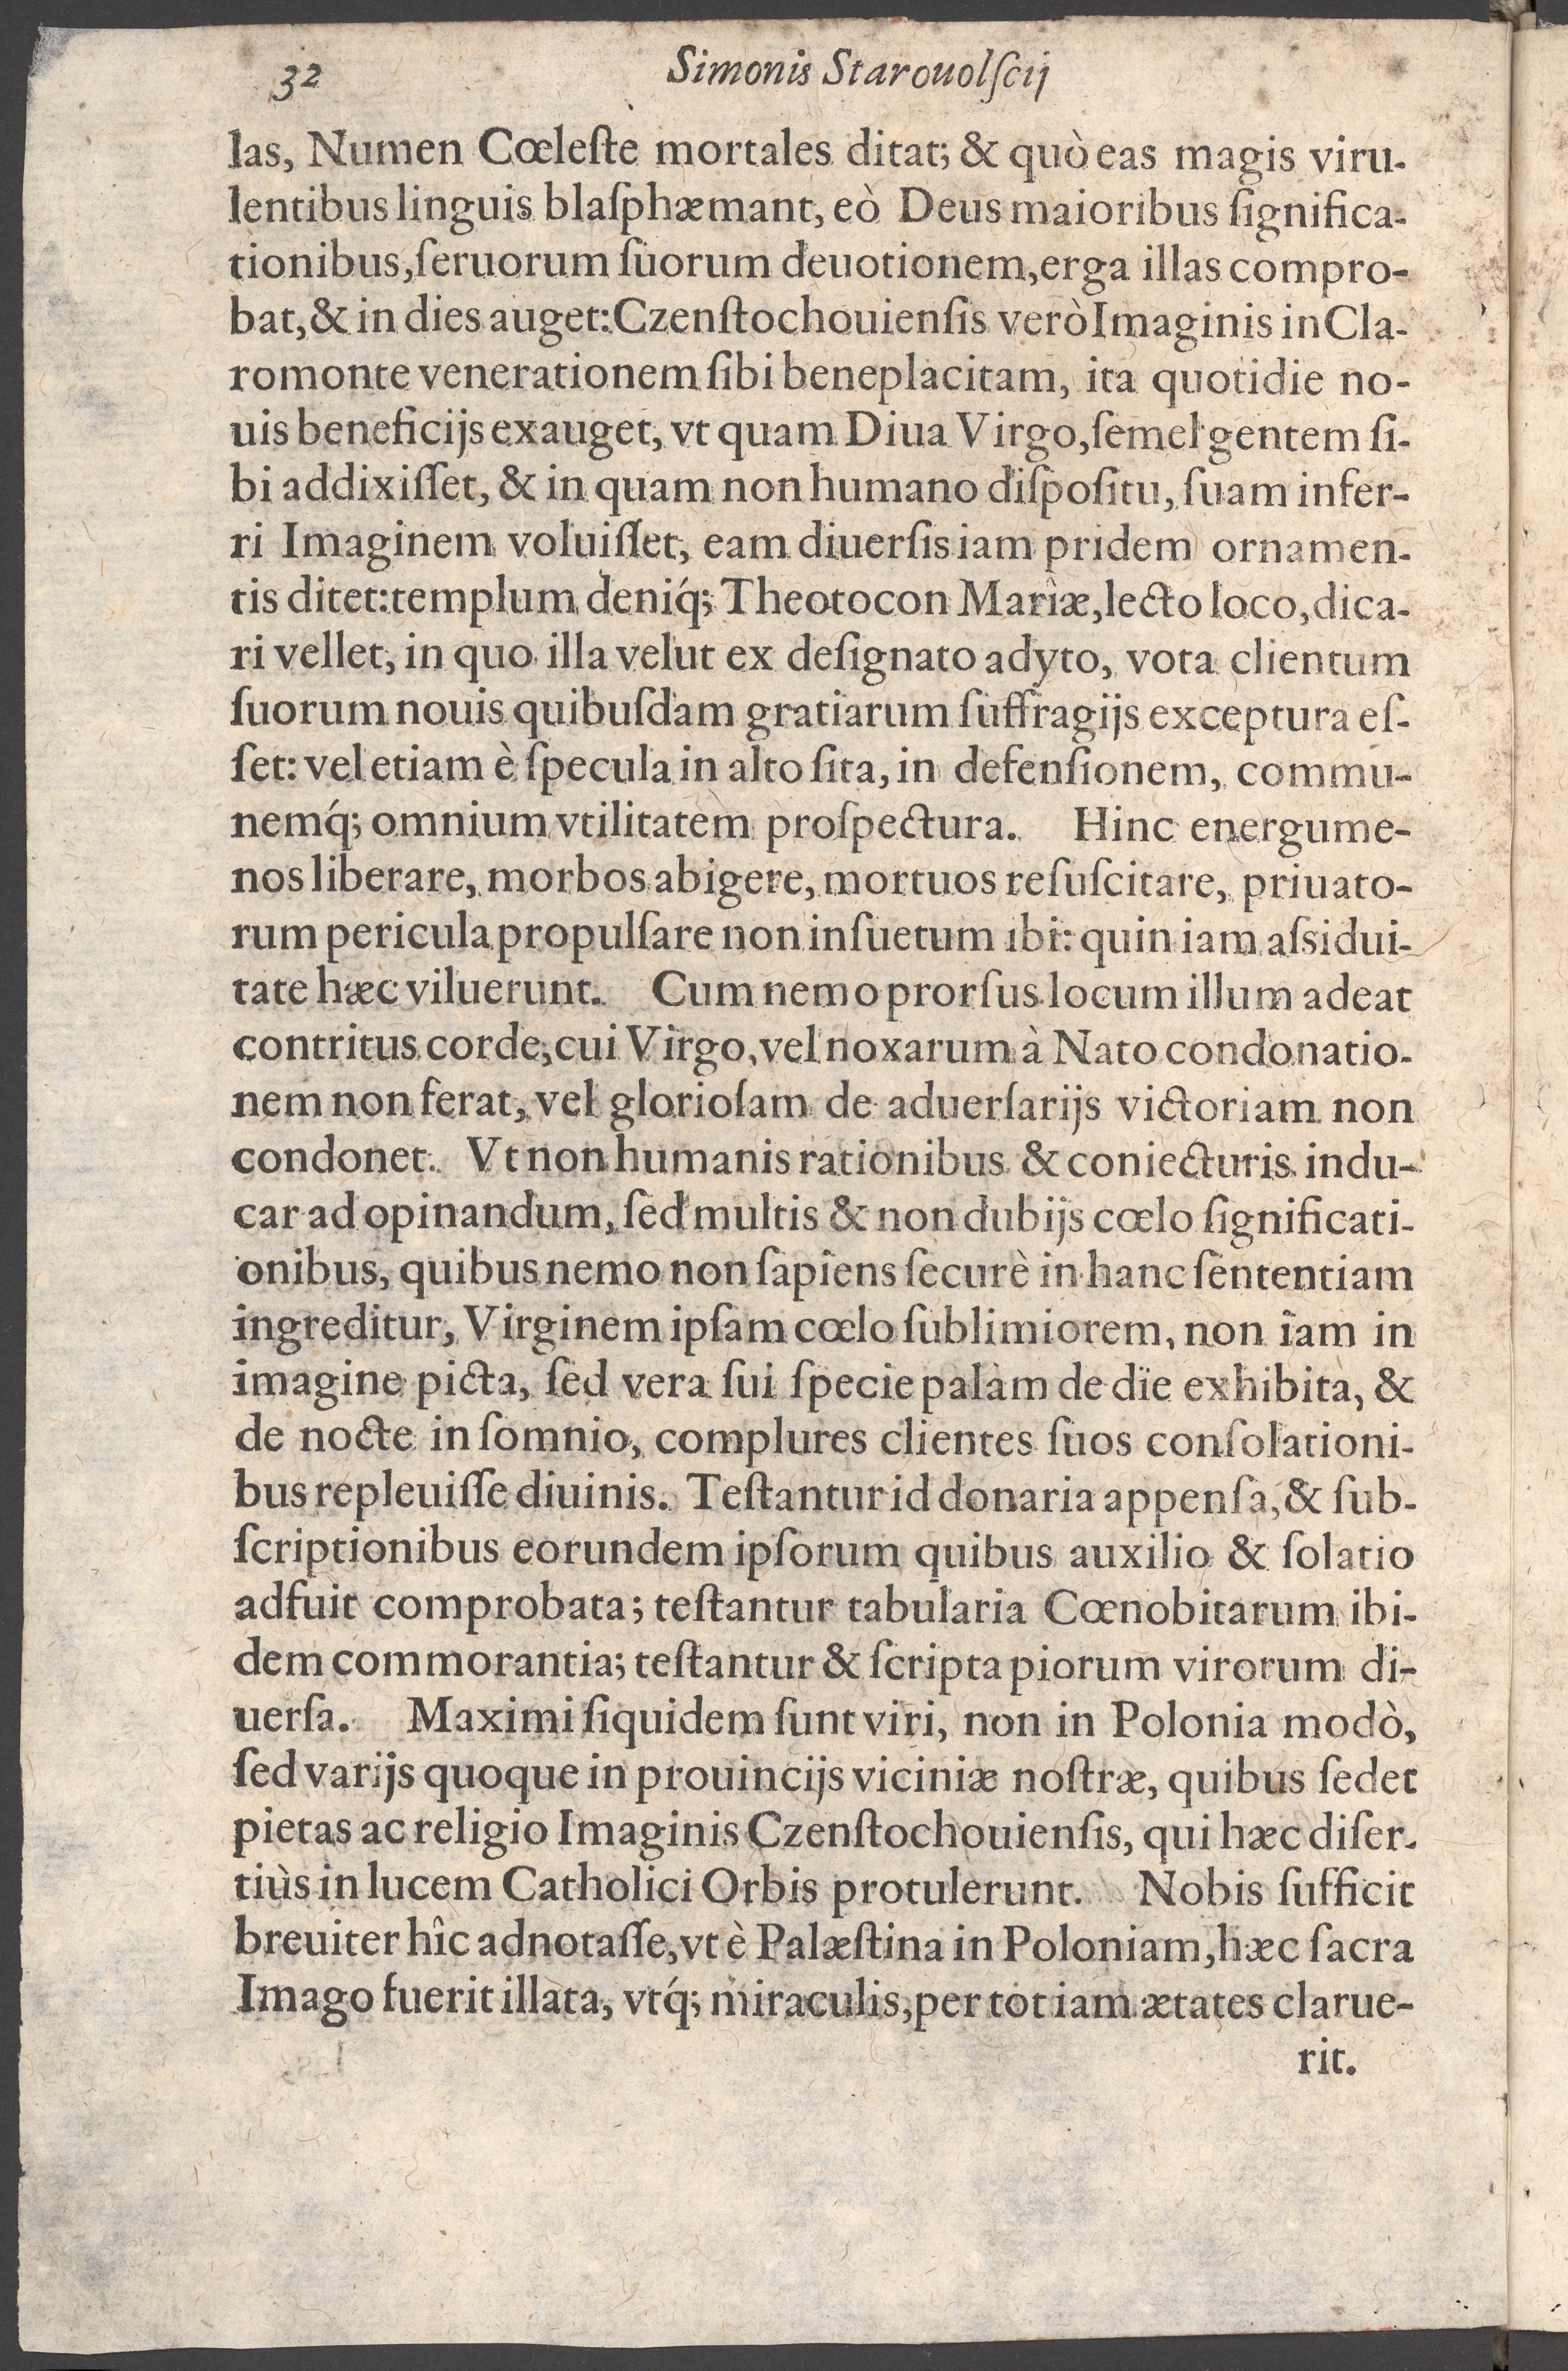 32 Simonis Starouolſcij
las, Numen Cœleſte mortales ditat; & quò eas magis viru-
lentibus linguis blaſphæmant, eò Deus maioribus ſignifica-
tionibus, ſeruorum ſuorum deuotionem, erga illas compro-
bat, & in dies auget: Czenſtochouienſis verò Imaginis in Cla-
romonte venerationem ſibi beneplacitam, ita quotidie no-
uis beneficijs exauget, vt quam Diua Virgo, ſemel gentem ſi-
bi addixiſſet, & in quam non humano diſpoſitu, ſuam infer-
ri Imaginem voluiſſet, eam diuerſis iam pridem ornamen-
tis ditet: templum deniq́; Theotocon Mariæ, lecto loco, dica-
ri vellet, in quo illa velut ex deſignato adyto, vota clientum
ſuorum nouis quibuſdam gratiarum ſuffragijs exceptura eſ-
ſet: vel etiam è ſpecula in alto ſita, in defenſionem, commu-
nemq́; omnium vtilitatem proſpectura. Hinc energume-
nos liberare, morbos abigere, mortuos reſuſcitare, priuato-
rum pericula propulſare non inſuetum ibi: quin iam aſsidui-
tate hæc viluerunt. Cum nemo prorſus locum illum adeat
contritus corde, cui Virgo, vel noxarum à Nato condonatio-
nem non ferat, vel glorioſam de aduerſarijs victoriam non
condonet. Vt non humanis rationibus & coniecturis indu-
car ad opinandum, ſed multis & non dubijs cœlo ſignificati-
onibus, quibus nemo non ſapiens ſecurè in hanc ſententiam
ingreditur, Virginem ipſam cœlo ſublimiorem, non iam in
imagine picta, ſed vera ſui ſpecie palàm de die exhibita, &
de nocte in ſomnio, complures clientes ſuos conſolationi-
bus repleuiſſe diuinis. Teſtantur id donaria appenſa, & ſub-
ſcriptionibus eorundem ipſorum quibus auxilio & ſolatio
adfuit comprobata; teſtantur tabularia Cœnobitarum ibi-
dem commorantia; teſtantur & ſcripta piorum virorum di-
uerſa. Maximi ſiquidem ſunt viri, non in Polonia modò,
ſed varijs quoque in prouincijs viciniæ noſtræ, quibus ſedet
pietas ac religio Imaginis Czenſtochouienſis, qui hæc diſer-
tiùs in lucem Catholici Orbis protulerunt. Nobis ſufficit
breuiter hîc adnotaſſe, vt è Palæſtina in Poloniam, hæc ſacra
Imago fuerit illata, vtq́; miraculis, per tot iam ætates clarue-
rit.